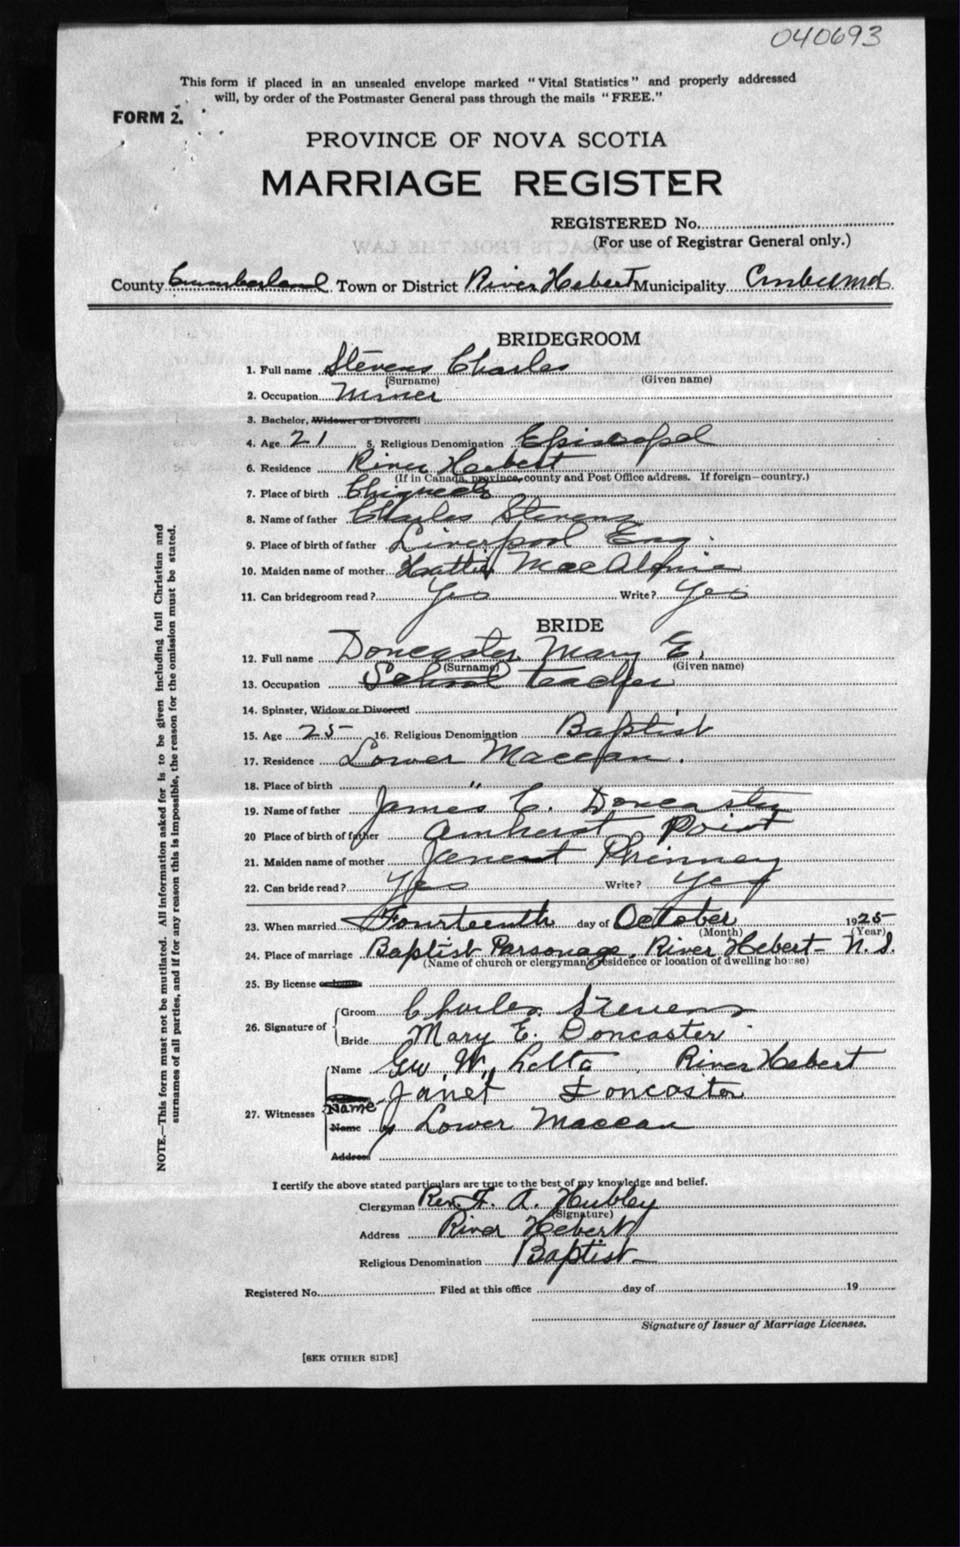 040693
This form if placed in an unsealed envelope marked "Vital Statistics" and properly addressed
will, by order of the Postmaster General pass through the mails "FREE."
FORM 2.
PROVINCE OF NOVA SCOTIA
MARRIAGE REGISTER
REGISTERED No.
(For use of Registrar General only.)
County Cumberland Town or District River Hebert Municipality
BRIDEGROOM
1. Full name Stevens Charles
(Surname) (Given name)
2. Occupation Miner
3. Bachelor, Widower or Divorced
4. Age 21 5. Religious Denomination Episcopal
6. Residence River Hebert
(If in Canada, province, county and Post Office address. If foreign—country.)
7. Place of birth
8. Name of father Charles Stevens
9. Place of birth of father Liverpool Eng.
10. Maiden name of mother Hattie
11. Can bridegroom read? Yes Write? Yes
BRIDE
12. Full name Doncaster Mary E.
(Surname) (Given name)
13. Occupation School Teacher
14. Spinster, Widow or Divorced
15. Age 25 16. Religious Denomination Baptist
17. Residence Lower Maccan.
18. Place of birth "
19. Name of father James C. Doncaster
20 Place of birth of father Amherst Point
21. Maiden name of mother Phinney
22. Can bride read? Yes Write? Yes
23. When married Fourteenth day of October 1925
(Month) (Year)
24. Place of marriage Baptist Parsonage, River Hebert - N.S.
(Name of church or clergyman's residence or location of dwelling house)
25. By license
26. Signature of Groom Charles Stevens
Bride Mary E. Doncaster
Name Geo. W. River Hebert
27. Witnesses Name Janet Doncaster
Name Lower Maccan
Address
I certify the above stated particulars are true to the best of my knowledge and belief.
Clergyman Rev. F. A. Hubley
(Signature)
Address River Hebert
Religious Denomination Baptist
Registered No. Filed at this office day of 19
Signature of Issuer of Marriage Licenses.
[SEE OTHER SIDE]
NOTE.—This form must not be mutilated. All information asked for is to be given including full Christian and
surnames of all parties, and if for any reason this is impossible, the reason for the omission must be stated.